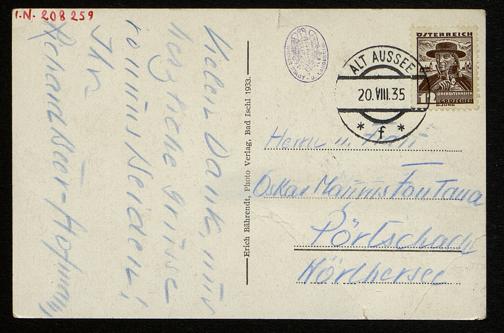 I.N. 208 259
Vielen Dank, und
herzliche Grüsse
von uns beiden!
Ihr
Richard Beer-Hofmann
Erich Bährendt, Photo Verlag, Bad Ischl 1933.
ALT AUSSEE
20.VIII.35
* f *
ÖSTERREICH
Herrn u. Frau
Oskar Maurus Fontana
Pörtschach
Wörthersee